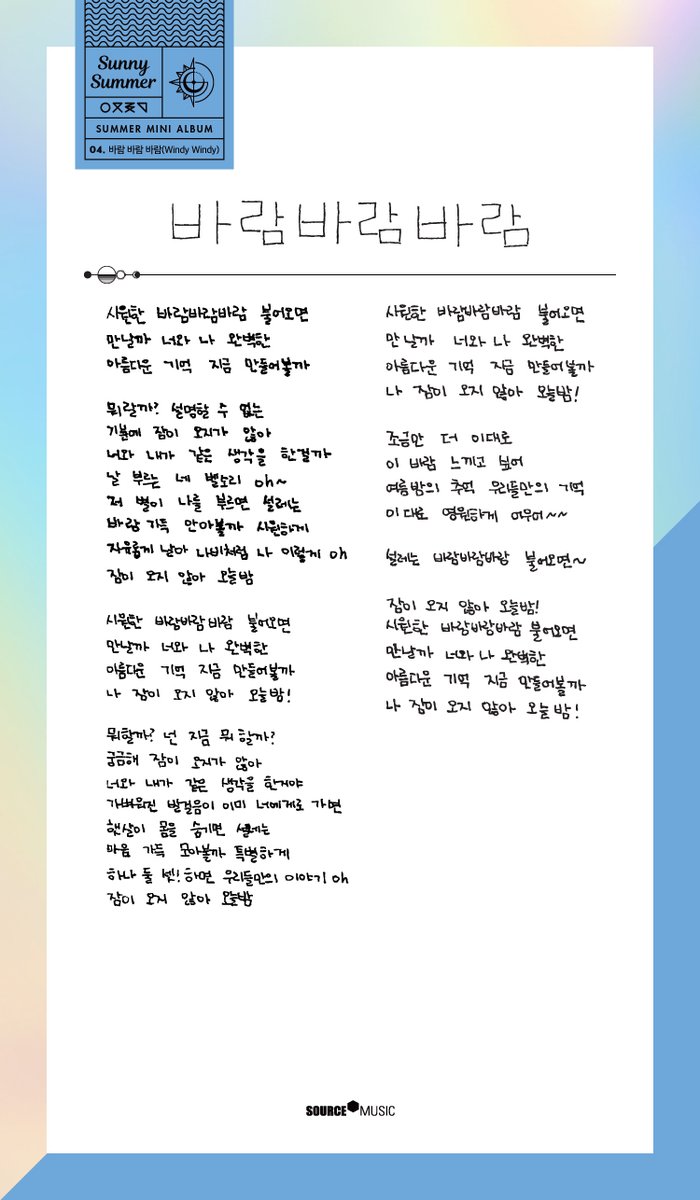 Sunny
Summer
SUMMER MINI ALBUM
04. 바람 바람 바람(Windy Windy)
바람바람바람
시원한 바람바람바람 불어오면
만날까 너와 나 완벽한
아름다운 기억 지금 만들어볼까
뭐랄까? 설명할 수 없는
기분에 잠이 오지가 않아
너와 내가 같은 생각을 한걸까
날 부르는 네 별소리 oh~
저 별이 나를 부르면 설레는
바람 가득 안아볼까 시원하게
자유롭게 날아 나비처럼 나 이렇게 oh
잠이 오지 않아 오늘밤
시원한 바람바람바람 불어오면
만날까 너와 나 완벽한
아름다운 기억 지금 만들어볼까
나 잠이 오지 않아 오늘밤!
뭐할까? 넌 지금 뭐 할까?
궁금해 잠이 오지가 않아
너와 내가 같은 생각을 한거야
가벼워진 발걸음이 이미 너에게로 가면
햇살이 몸을 숨기면 설레는
마음 가득 모아볼까 특별하게
하나 둘 셋! 하면 우리들만의 이야기 oh
잠이 오지 않아 오늘밤
시원한 바람바람바람 불어오면
만날까 너와 나 완벽한
아름다운 기억 지금 만들어볼까
나 잠이 오지 않아 오늘밤!
조금만 더 이대로
이 바람 느끼고 싶어
여름밤의 추억 우리들만의 기억
이대로 영원하게 어우어~~
설레는 바람바람바람 불어오면~
잠이 오지 않아 오늘밤!
시원한 바람바람바람 불어오면
만날까 너와 나 완벽한
아름다운 기억 지금 만들어볼까
나 잠이 오지 않아 오늘밤!
SOURCE MUSIC